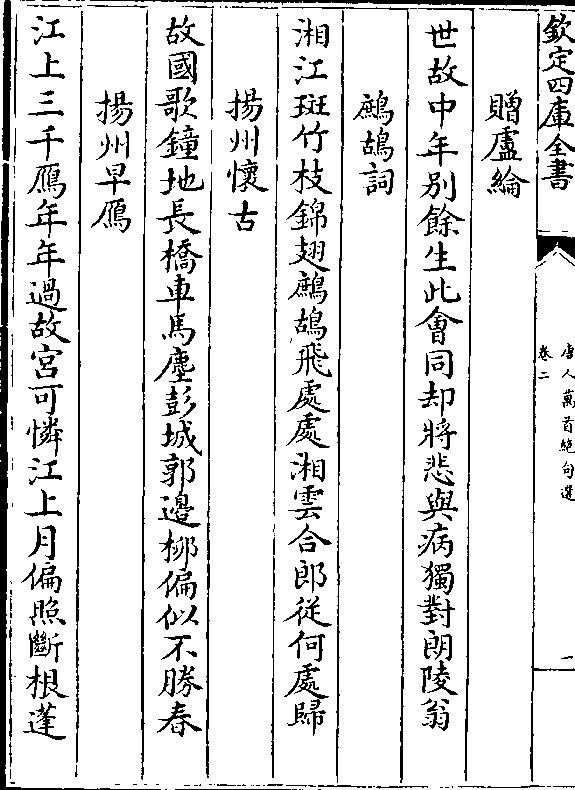 欽定四庫全書
唐人萬首絶句選
卷二
一
贈盧綸
世故中年别餘生此會同却將悲與病獨對朗陵翁
鷓鴣詞
湘江斑竹枝錦翅鷓鴣飛處處湘雲合郎從何處歸
揚州懷古
故國歌鐘地長橋車馬塵彭城郭邊栁偏似不勝春
揚州早鴈
江上三千鴈年年過故宮可憐江上月偏照斷根蓬